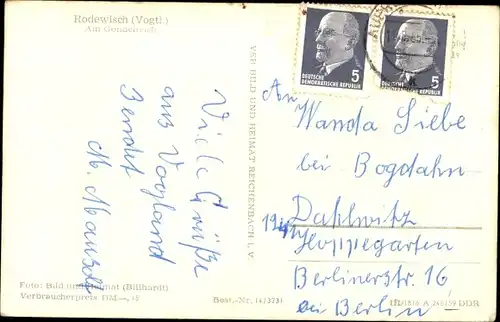 Rodewisch (Vogtl.)
Am Gondelteich
Viele Grüße
aus Vogland
Sendet
M.
Foto: Bild und Heimat (Billhardt)
Verbraucherpreis DM —,15
VEB BILD UND HEIMAT REICHENBACH i. V.
Best.-Nr. 14/3731
5
DEUTSCHE
DEMOKRATISCHE REPUBLIK
5
DEUTSCHE
DEMOKRATISCHE REPUBLIK
An
Wanda Siebe
bei Bogdahn
Dahlwitz
Hoppegarten
Berlinerstr. 16
bei Berlin
A 246/59 DDR